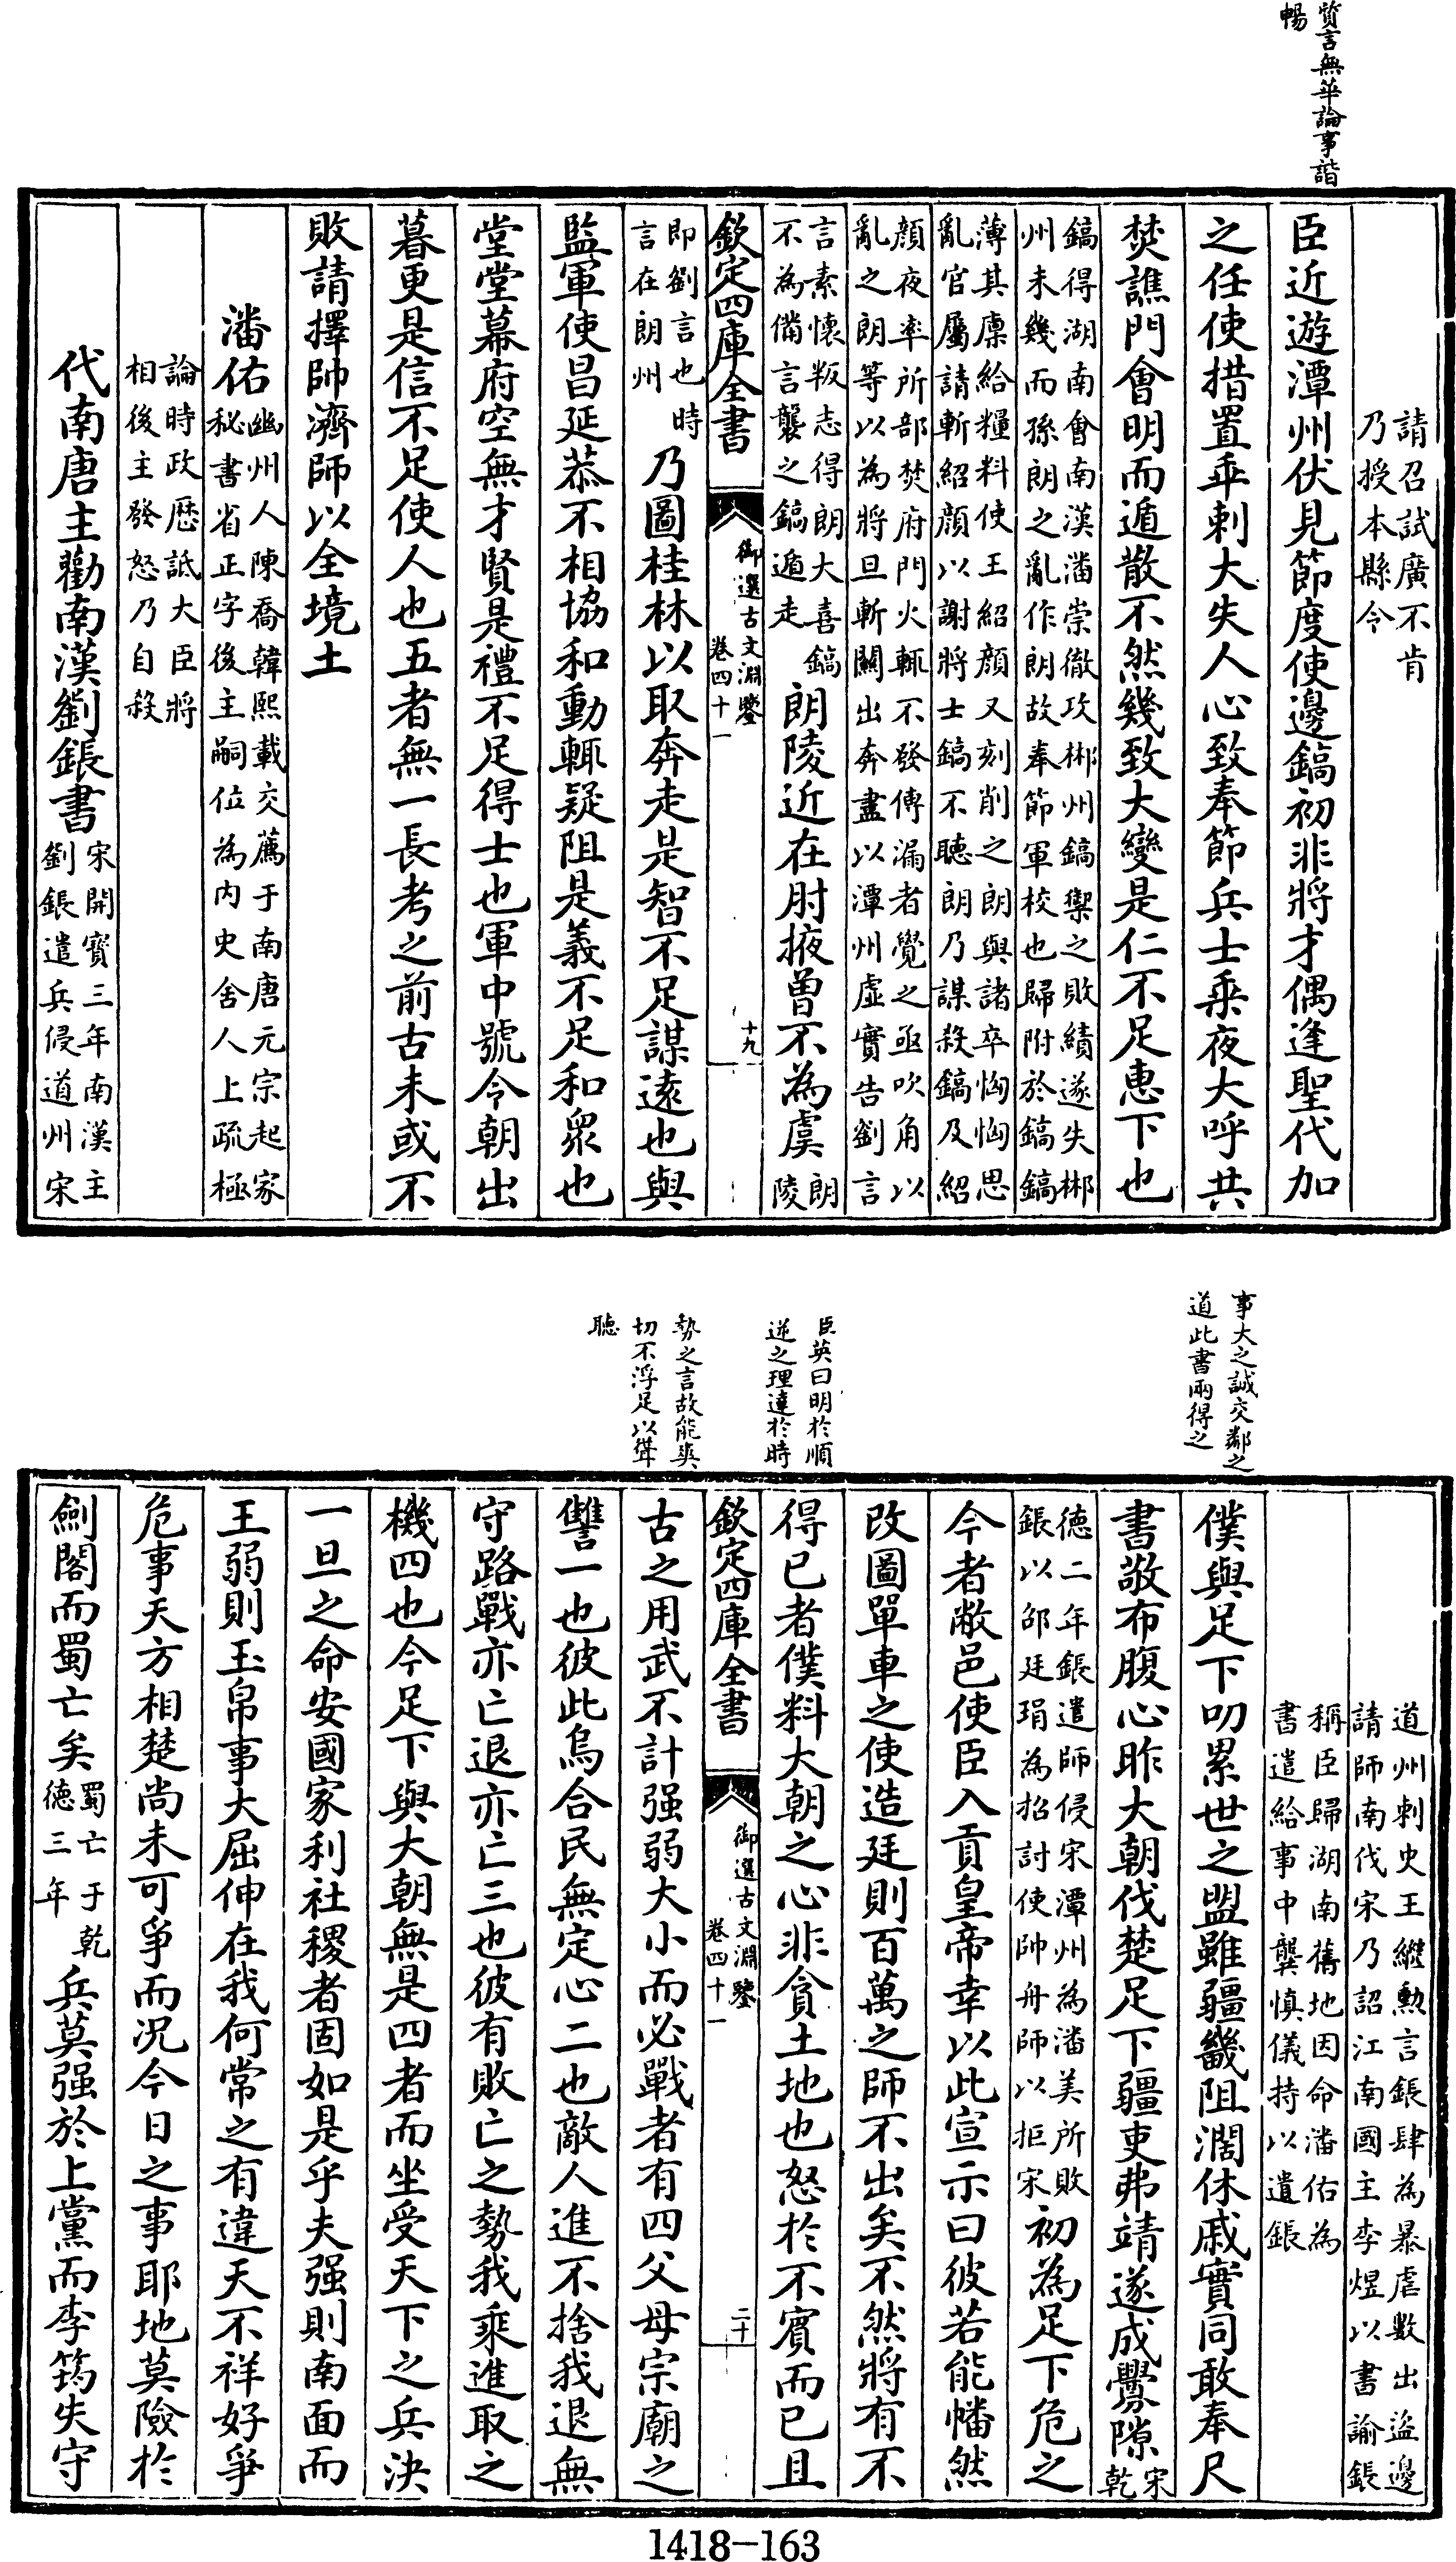 質言無華論事諧
暢
請召試廣不肯
乃授本縣令
臣近遊潭州伏見節度使邊鎬初非將才偶逢聖代加
之任使措置乖剌大失人心致奉節兵士乘夜大呼共
焚譙門會明而遁散不然幾致大變是仁不足惠下也
鎬得湖南會南漢潘崇徹攻郴州鎬禦之敗績遂失郴
州未幾而孫朗之亂作朗故奉節軍校也歸附於鎬鎬
薄其廪給糧料使王紹顔又刻削之朗與諸卒恟恟思
亂官屬請斬紹顔以謝將士鎬不聽朗乃謀殺鎬及紹
顔夜率所部焚府門火輒不發傳漏者覺之亟吹角以
亂之朗等以為將旦斬關出奔盡以潭州虛實告劉言
言素懷叛志得朗大喜鎬
不為備言襲之鎬遁走
朗陵近在肘掖曾不為虞
朗
陵
欽定四庫全書
御選古文淵鑒
卷四十一
十九
即劉言也時
言在朗州
乃圖桂林以取奔走是智不足謀遠也與
監軍使昌延恭不相協和動輒疑阻是義不足和衆也
堂堂幕府空無才賢是禮不足得士也軍中號令朝出
暮更是信不足使人也五者無一長考之前古未或不
敗請擇帥濟師以全境土
潘佑
幽州人陳喬韓熙載交薦于南唐元宗起家
秘書省正字後主嗣位為内史舍人上疏極
論時政歷詆大臣將
相後主發怒乃自殺
代南唐主勸南漢劉鋹書
宋開寶三年南漢主
劉鋹遣兵侵道州宋
事大之誠交鄰之
道此書兩得之
臣英曰明於順
逆之理達於時
勢之言故能爽
切不浮足以聳
聽
道州刺史王繼勲言鋹肆為暴虐數出盜邊
請師南伐宋乃詔江南國主李煜以書諭鋹
稱臣歸湖南舊地因命潘佑為
書遣給事中龔慎儀持以遺鋹
僕與足下叨累世之盟雖疆畿阻濶休戚實同敢奉尺
書敬布腹心昨大朝伐楚足下疆吏弗靖遂成釁隙
宋
乾
德二年鋹遣師侵宋潭州為潘美所敗
鋹以邵廷琄為招討使帥舟師以拒宋
初為足下危之
今者敝邑使臣入貢皇帝幸以此宣示曰彼若能幡然
改圖單車之使造廷則百萬之師不出矣不然將有不
得已者僕料大朝之心非貪土地也怒於不賓而已且
欽定四庫全書
御選古文淵鑒
卷四十一
二十
古之用武不計强弱大小而必戰者有四父母宗廟之
讐一也彼此烏合民無定心二也敵人進不捨我退無
守路戰亦亡退亦亡三也彼有敗亡之勢我乘進取之
機四也今足下與大朝無是四者而坐受天下之兵決
一旦之命安國家利社稷者固如是乎夫强則南面而
王弱則玉帛事大屈伸在我何常之有違天不祥好爭
危事天方相楚尚未可爭而况今日之事耶地莫險於
劍閣而蜀亡矣
蜀亡于乾
德三年
兵莫强於上黨而李筠失守
1418-163